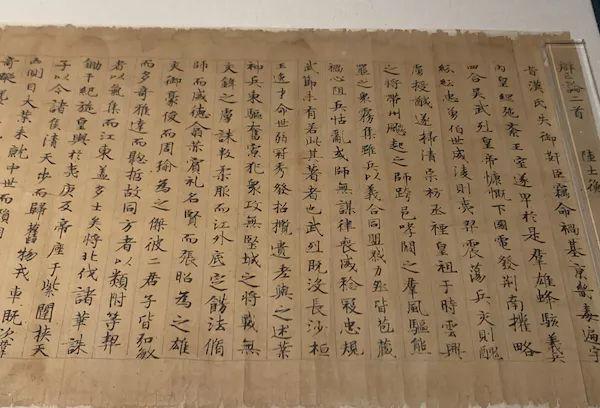 辯亡論二首 陸士衡
昔漢氏失御姧臣竊命禍基京畿毒遍宇
內皇綱弛紊王室遂卑於是羣雄蜂駭義兵
四合吳武烈皇帝慷慨下國電發荊南權略
紛紜忠勇伯世威稜則夷羿震蕩兵交則醜
虜授馘遂掃清宗祊丞禋皇祖于時雲興
之將帶州飈起之師跨邑哮闞之羣風驅熊
羆之衆霧集雖兵以義合同盟戮力然皆苞藏
禍心阻兵怙亂或師無謀律喪威稔寇忠規
武節未有若此其著者也武烈既沒長沙桓
王逸才命世弱冠秀發招攬遺老與之述業
神兵東驅奮寡犯衆攻無堅城之將戰無
交鋒之虜誅叛柔服而江外底定飭法脩
師而威德翕赫賓礼名賢而張昭為之雄
交御豪俊而周瑜為之傑彼二君子皆弘敏
而多奇雅達而聡哲故同方者以類附等契
者以氣集而江東蓋多士矣將北伐諸華誅
鋤干紀旋皇輿於夷庚反帝座于紫闥挾天
子以令諸侯清天步而歸舊物戎車既次羣
凶側目大業未就中世而殞用
奇蹤